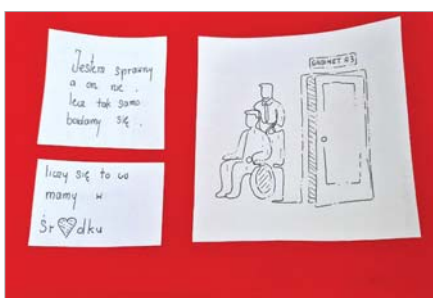 Jestem sprawny
a on nie.
lecz tak samo
badamy się.
liczy się to co
mamy w
śr♡dku
GABINET 63